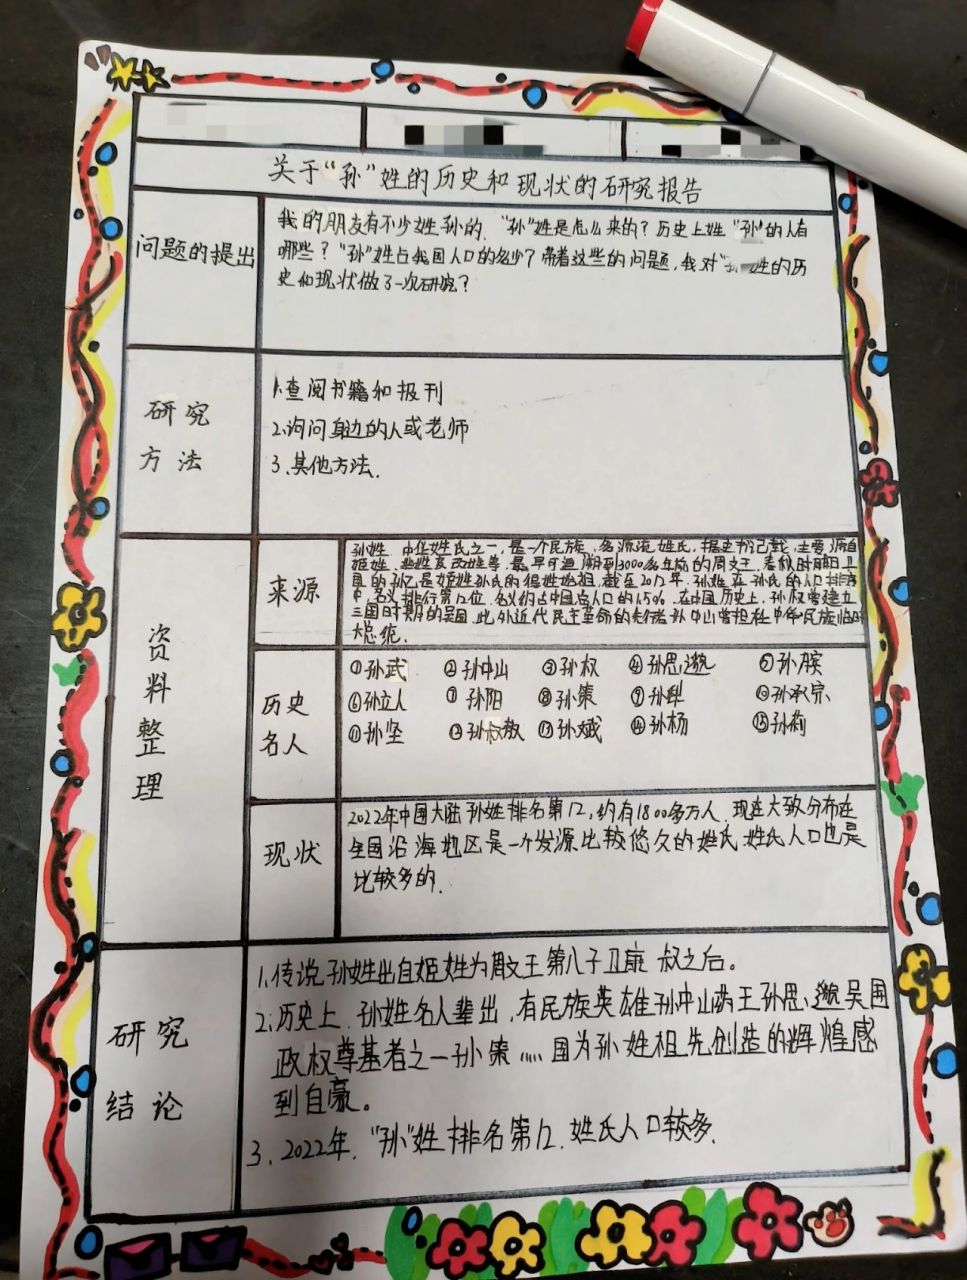 关于“孙”姓的历史和现状的研究报告
问题的提出
我的朋友有不少姓孙的,“孙”姓是怎么来的?历史上姓“孙”的人有
哪些?“孙”姓占我国人口的多少?带着这些的问题,我对“孙”姓的历
史和现状做了一次研究?
研究
方法
1.查阅书籍和报刊
2.询问身边的人或老师
3.其他方法.
资料整理
来源
孙姓、中华姓氏之一,是一个民族、多源流姓氏,据史书记载,主要源自
姬姓、芈姓、妫姓等.最早可追溯到3000多年前的周文王.春秋时期卫
国的孙乙是姬姓孙氏的得姓始祖.截至2012年,孙姓在孙氏的人口排序
中,名义排行第12位,名义约占中国总人口的1.5%.在中国历史上,孙权曾建立
三国时期的吴国,此外近代民主革命的先行者孙中山曾担任中华民族临时
大总统.
历史
名人
①孙武 ②孙中山 ③孙权 ④孙思邈 ⑤孙膑
⑥孙立人 ⑦孙阳 ⑧孙策 ⑨孙犁 ⑩孙承宗
⑪孙坚 ⑫孙叔敖 ⑬孙斌 ⑭孙杨 ⑮孙莉
现状
2022年中国大陆孙姓排名第12,约有1800多万人.现在大致分布在
全国沿海地区是一个发源比较悠久的姓氏姓氏人口也是
比较多的.
研究
结论
1.传说孙姓出自姬姓为周文王第八子卫康 叔之后。
2.历史上.孙姓名人辈出,有民族英雄孙中山药王孙思邈吴国
政权尊基者之一孙策……因为孙姓祖先创造的辉煌感
到自豪。
3.2022年.“孙”姓排名第12.姓氏人口较多.